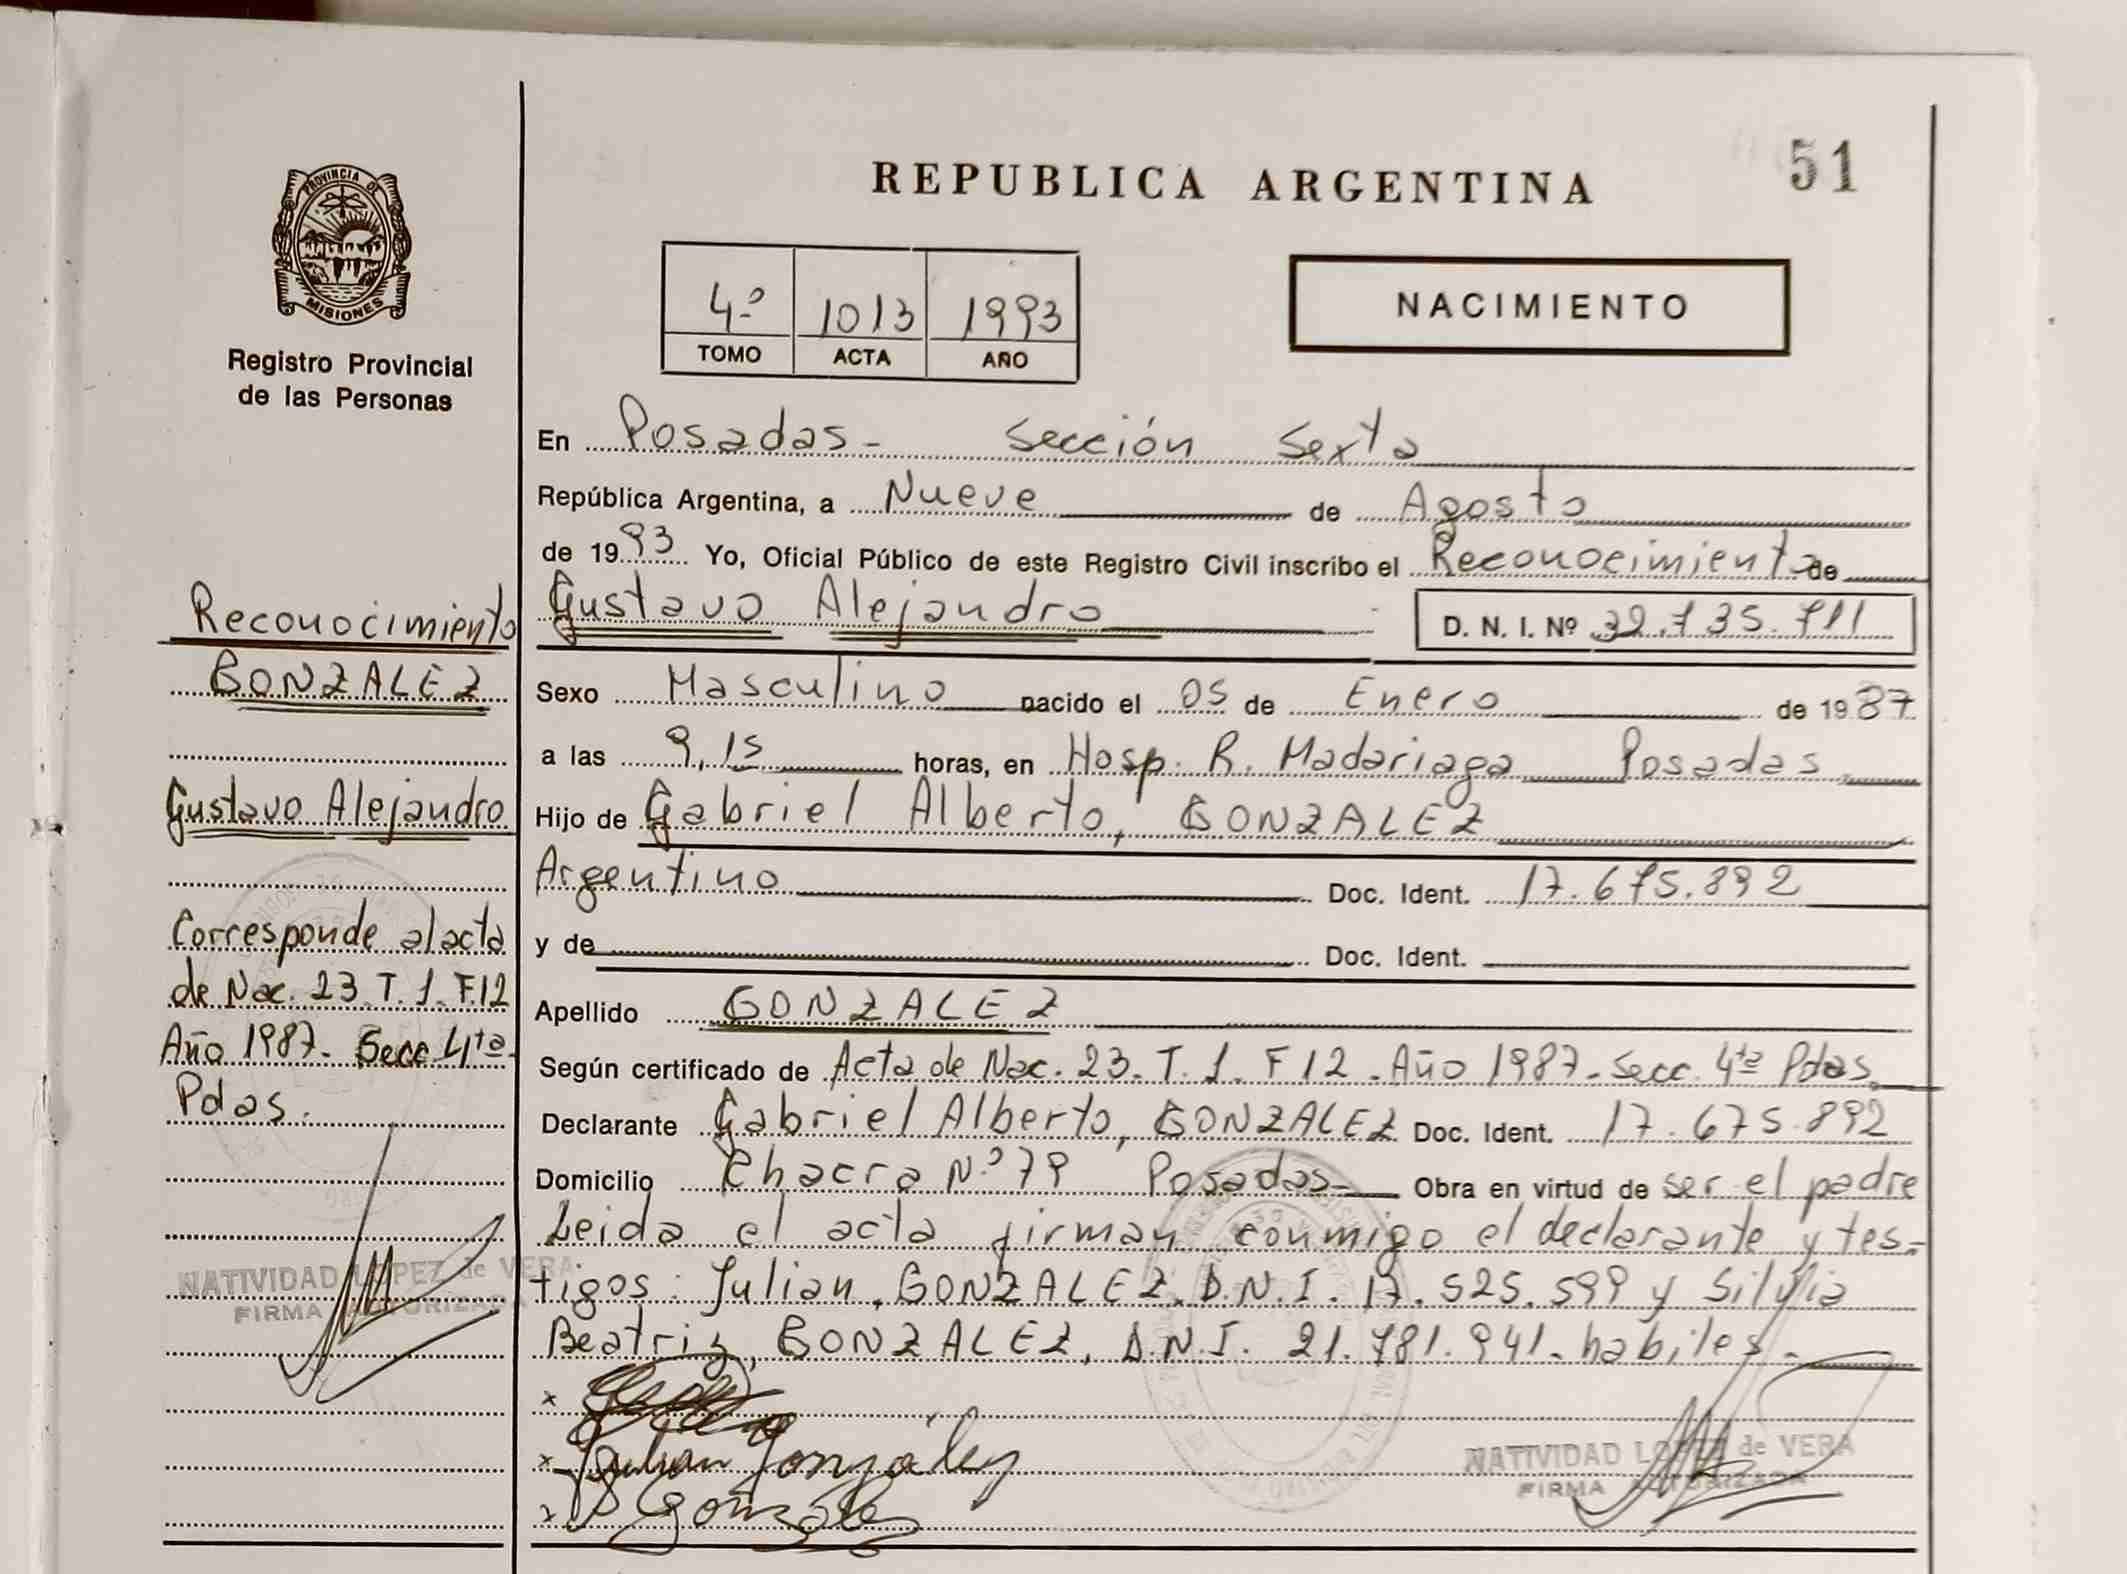 51
REPUBLICA ARGENTINA
PROVINCIA DE
MISIONES
Registro Provincial
de las Personas
4º 1013 1993
TOMO ACTA AÑO
NACIMIENTO
En Posadas- Sección Sexta
República Argentina, a Nueve de Agosto
de 1993 Yo, Oficial Público de este Registro Civil inscribo el Reconocimiento de
Gustavo Alejandro D. N. I. Nº 32.735.711
Sexo Masculino nacido el 05 de Enero de 1987
a las 9,15 horas, en Hosp. R. Madariaga Posadas
Hijo de Gabriel Alberto, GONZALEZ
Argentino Doc. Ident. 17.675.892
y de Doc. Ident.
Apellido GONZALEZ
Según certificado de Acta de Nac. 23. T. 1. F 12. Año 1987. Secc. 4ta Pdas.
Declarante Gabriel Alberto, GONZALEZ Doc. Ident. 17.675.892
Domicilio Chacra N.º 79 Posadas- Obra en virtud de ser el padre
Leida el acta firman conmigo el declarante y tes-
tigos: Julian, GONZALEZ. D.N.I. 17.525.599 y Silvia
Beatriz, GONZALEZ, D.N.I. 21.781.941. habiles.-
x
x Julian Gonzalez
x Gonzalez
NATIVIDAD LOPEZ de VERA
FIRMA AUTORIZADA
Reconocimiento
GONZALEZ
Gustavo Alejandro
Corresponde al acta
de Nac. 23 T. 1 F.12
Año 1987- Secc 4ta-
Pdas.
NATIVIDAD LOPEZ de VERA
FIRMA AUTORIZADA